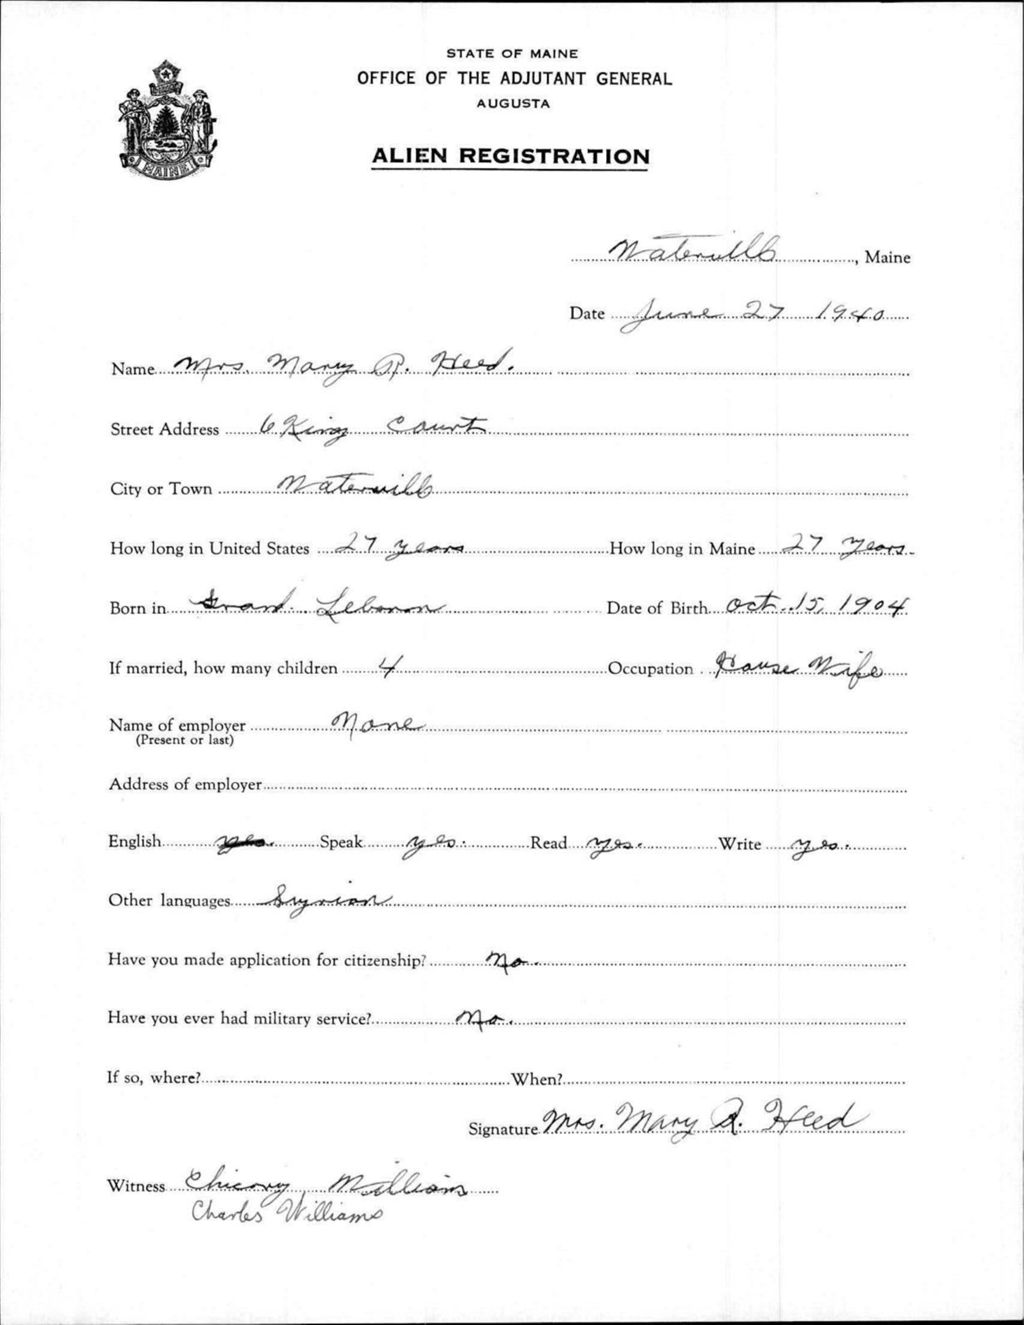 STATE OF MAINE
OFFICE OF THE ADJUTANT GENERAL
AUGUSTA
ALIEN REGISTRATION
MAINE
Waterville, Maine
Date June 27 1940
Name Mrs. Mary R. Heed.
Street Address 6 King Court
City or Town Waterville
How long in United States 27 years How long in Maine 27 Years
Born in Grand Lebanon Date of Birth Oct. 15, 1904
If married, how many children 4 Occupation House Wife
Name of employer None
(Present or last)
Address of employer
English Speak yes. Read yes. Write yes.
Other languages Syrian
Have you made application for citizenship? No.
Have you ever had military service? No.
If so, where? When?
Signature Mrs. Mary R. Heed
Witness Chicory Williams
Charles Williams